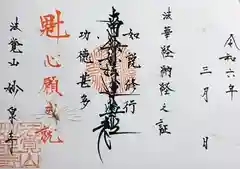 令和六年
三月 日
法華経納経之証
如説修行
南無妙法蓮華経
功徳甚多
心願成就
法覚山 妙泉寺